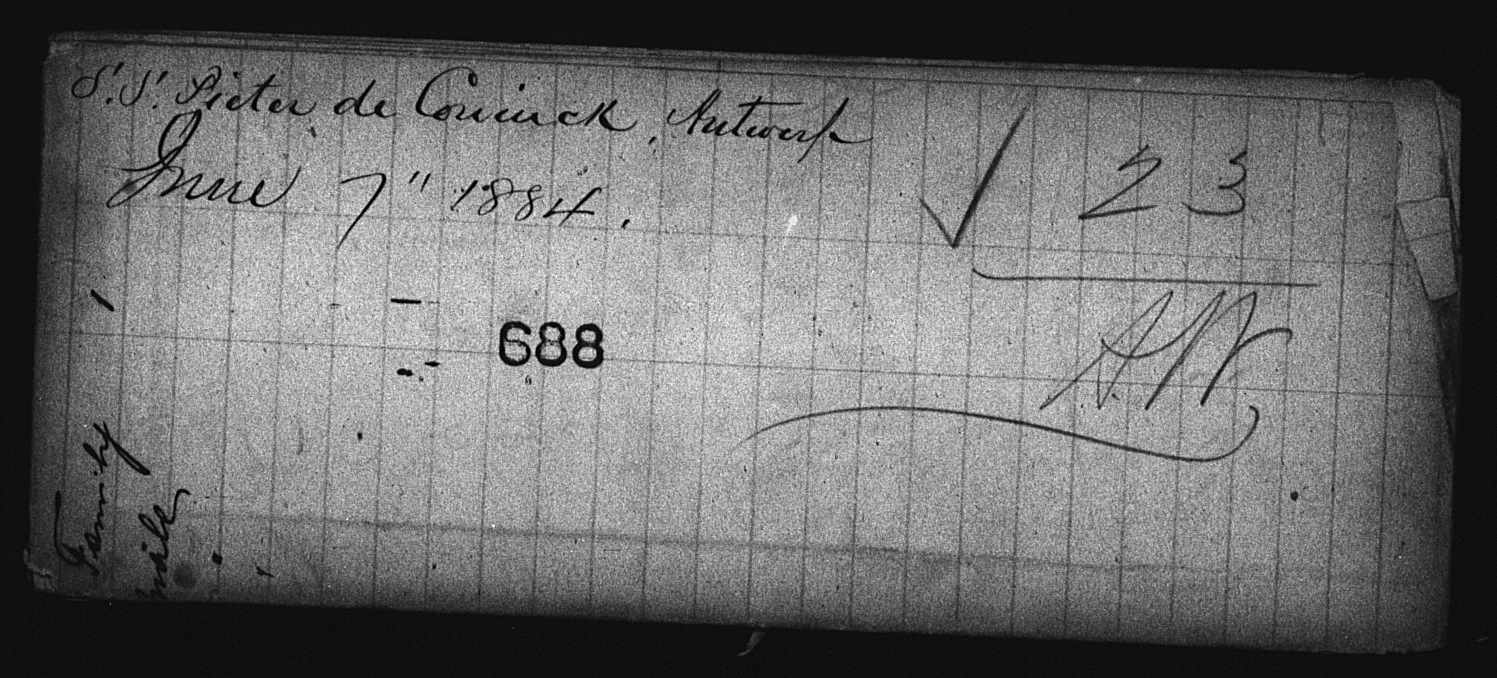 S.S. Pieter de Coninck, Antwerp
June 7" 1884.
√ 23
688
Family
male